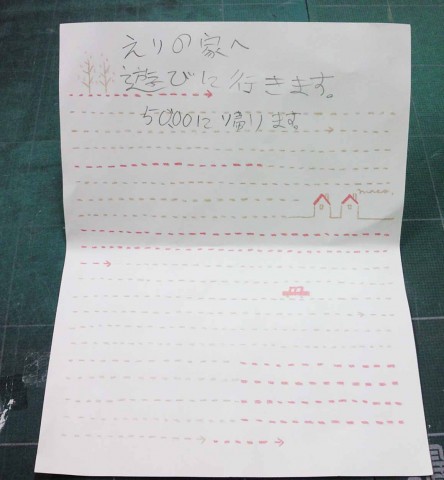 えりの家へ
遊びに行きます。
5:00に帰ります。